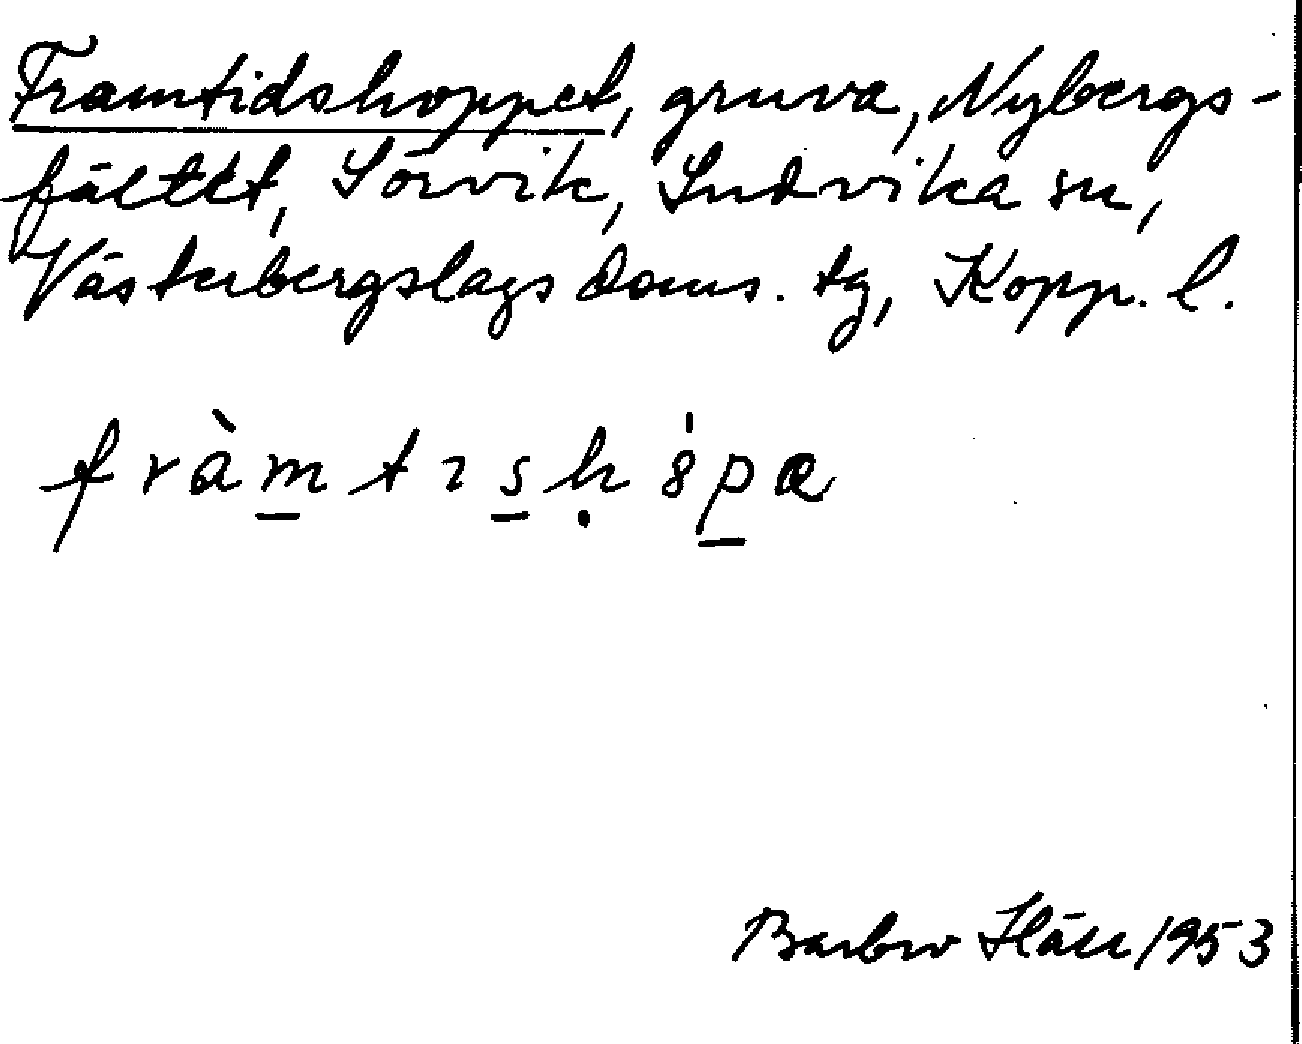 Framtidshoppet, gruva, Nybergs-
fältet, Sörvik, Ludvika sn,
Västerbergslags doms. tg, Kopp. l.
Barbro 1953